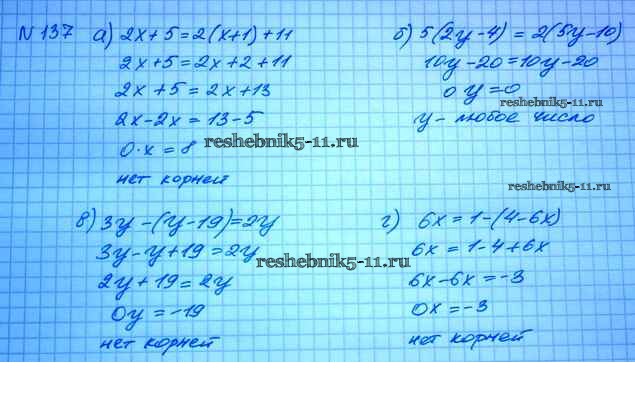 N 137 а) 2x + 5 = 2(x+1) + 11
2x + 5 = 2x + 2 + 11
2x + 5 = 2x + 13
2x - 2x = 13 - 5
0·x = 8
нет корней
б) 5(2y - 4) = 2(5y - 10)
10y - 20 = 10y - 20
0y = 0
y - любое число
в) 3y - (y - 19) = 2y
3y - y + 19 = 2y
2y + 19 = 2y
0y = -19
нет корней
г) 6x = 1 - (4 - 6x)
6x = 1 - 4 + 6x
6x - 6x = -3
0x = -3
нет корней
reshebnik5-11.ru
reshebnik5-11.ru
reshebnik5-11.ru
reshebnik5-11.ru